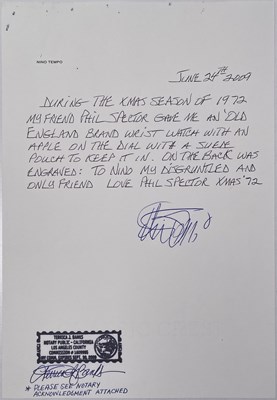 NINO TEMPO
JUNE 24TH 2009
DURING THE XMAS SEASON OF 1972
MY FRIEND PHIL SPECTOR GAVE ME AN "OLD
ENGLAND BRAND WRIST WATCH WITH AN
APPLE ON THE DIAL WITH A SUEDE
POUCH TO KEEP IT IN. ON THE BACK WAS
ENGRAVED: TO NINO MY DISGRUNTLED AND
ONLY FRIEND LOVE PHIL SPECTOR XMAS '72
NOTARY PUBLIC - CALIFORNIA
LOS ANGELES COUNTY
* PLEASE SEE NOTARY
ACKNOWLEDGMENT ATTACHED